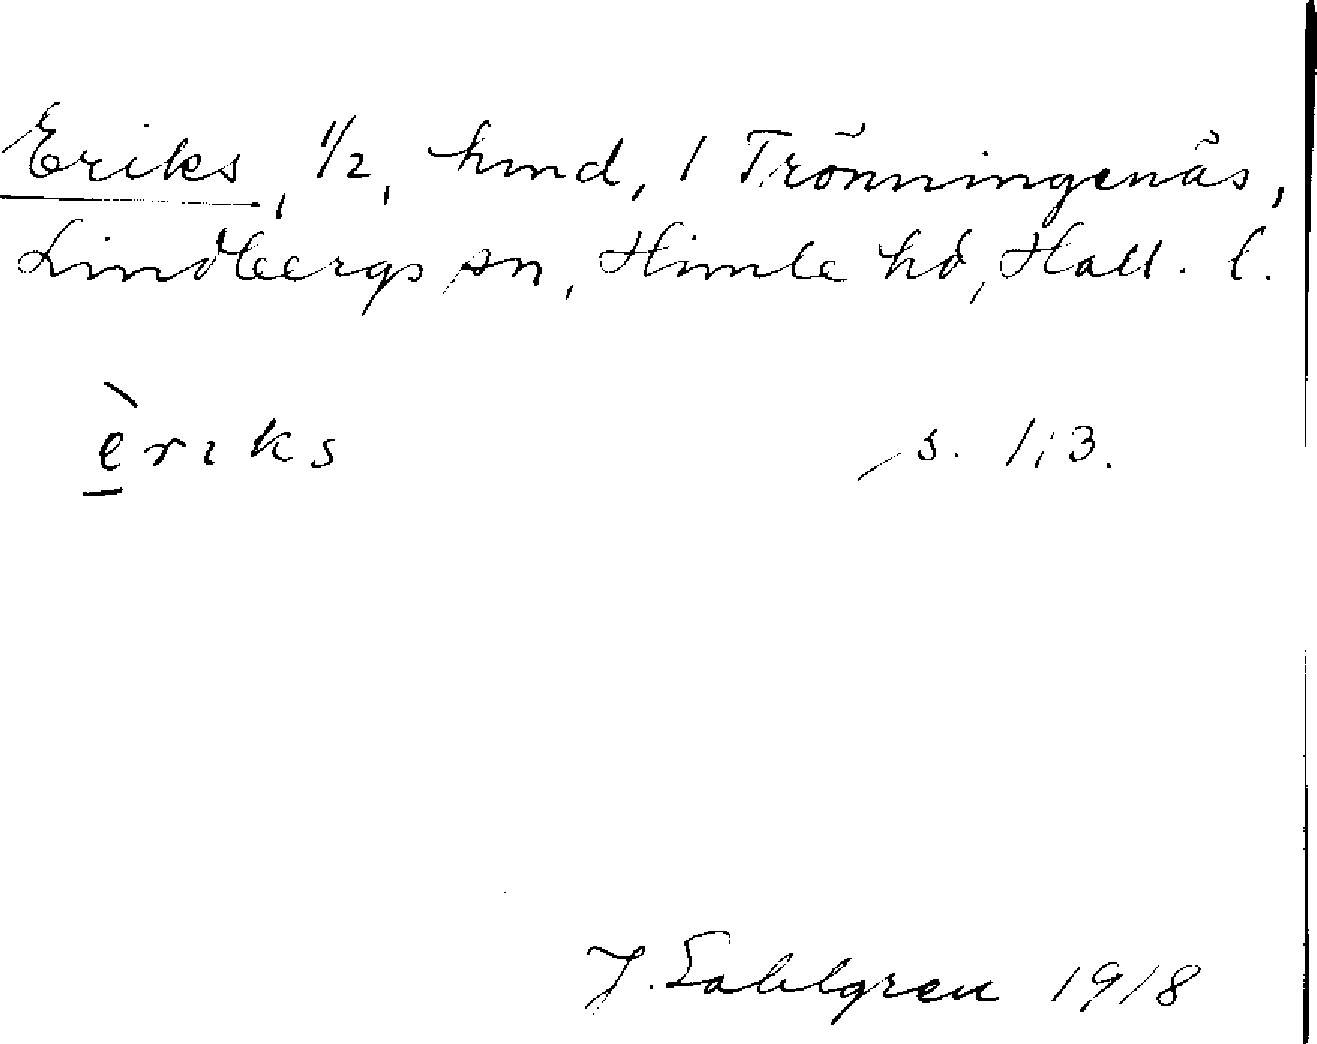 Eriks, 1/2, hmd, 1 Trönningenäs,
Lindbergs sn, Himle hd, Hall. l.
èriks s. 1;3.
J. Sahlgren 1918